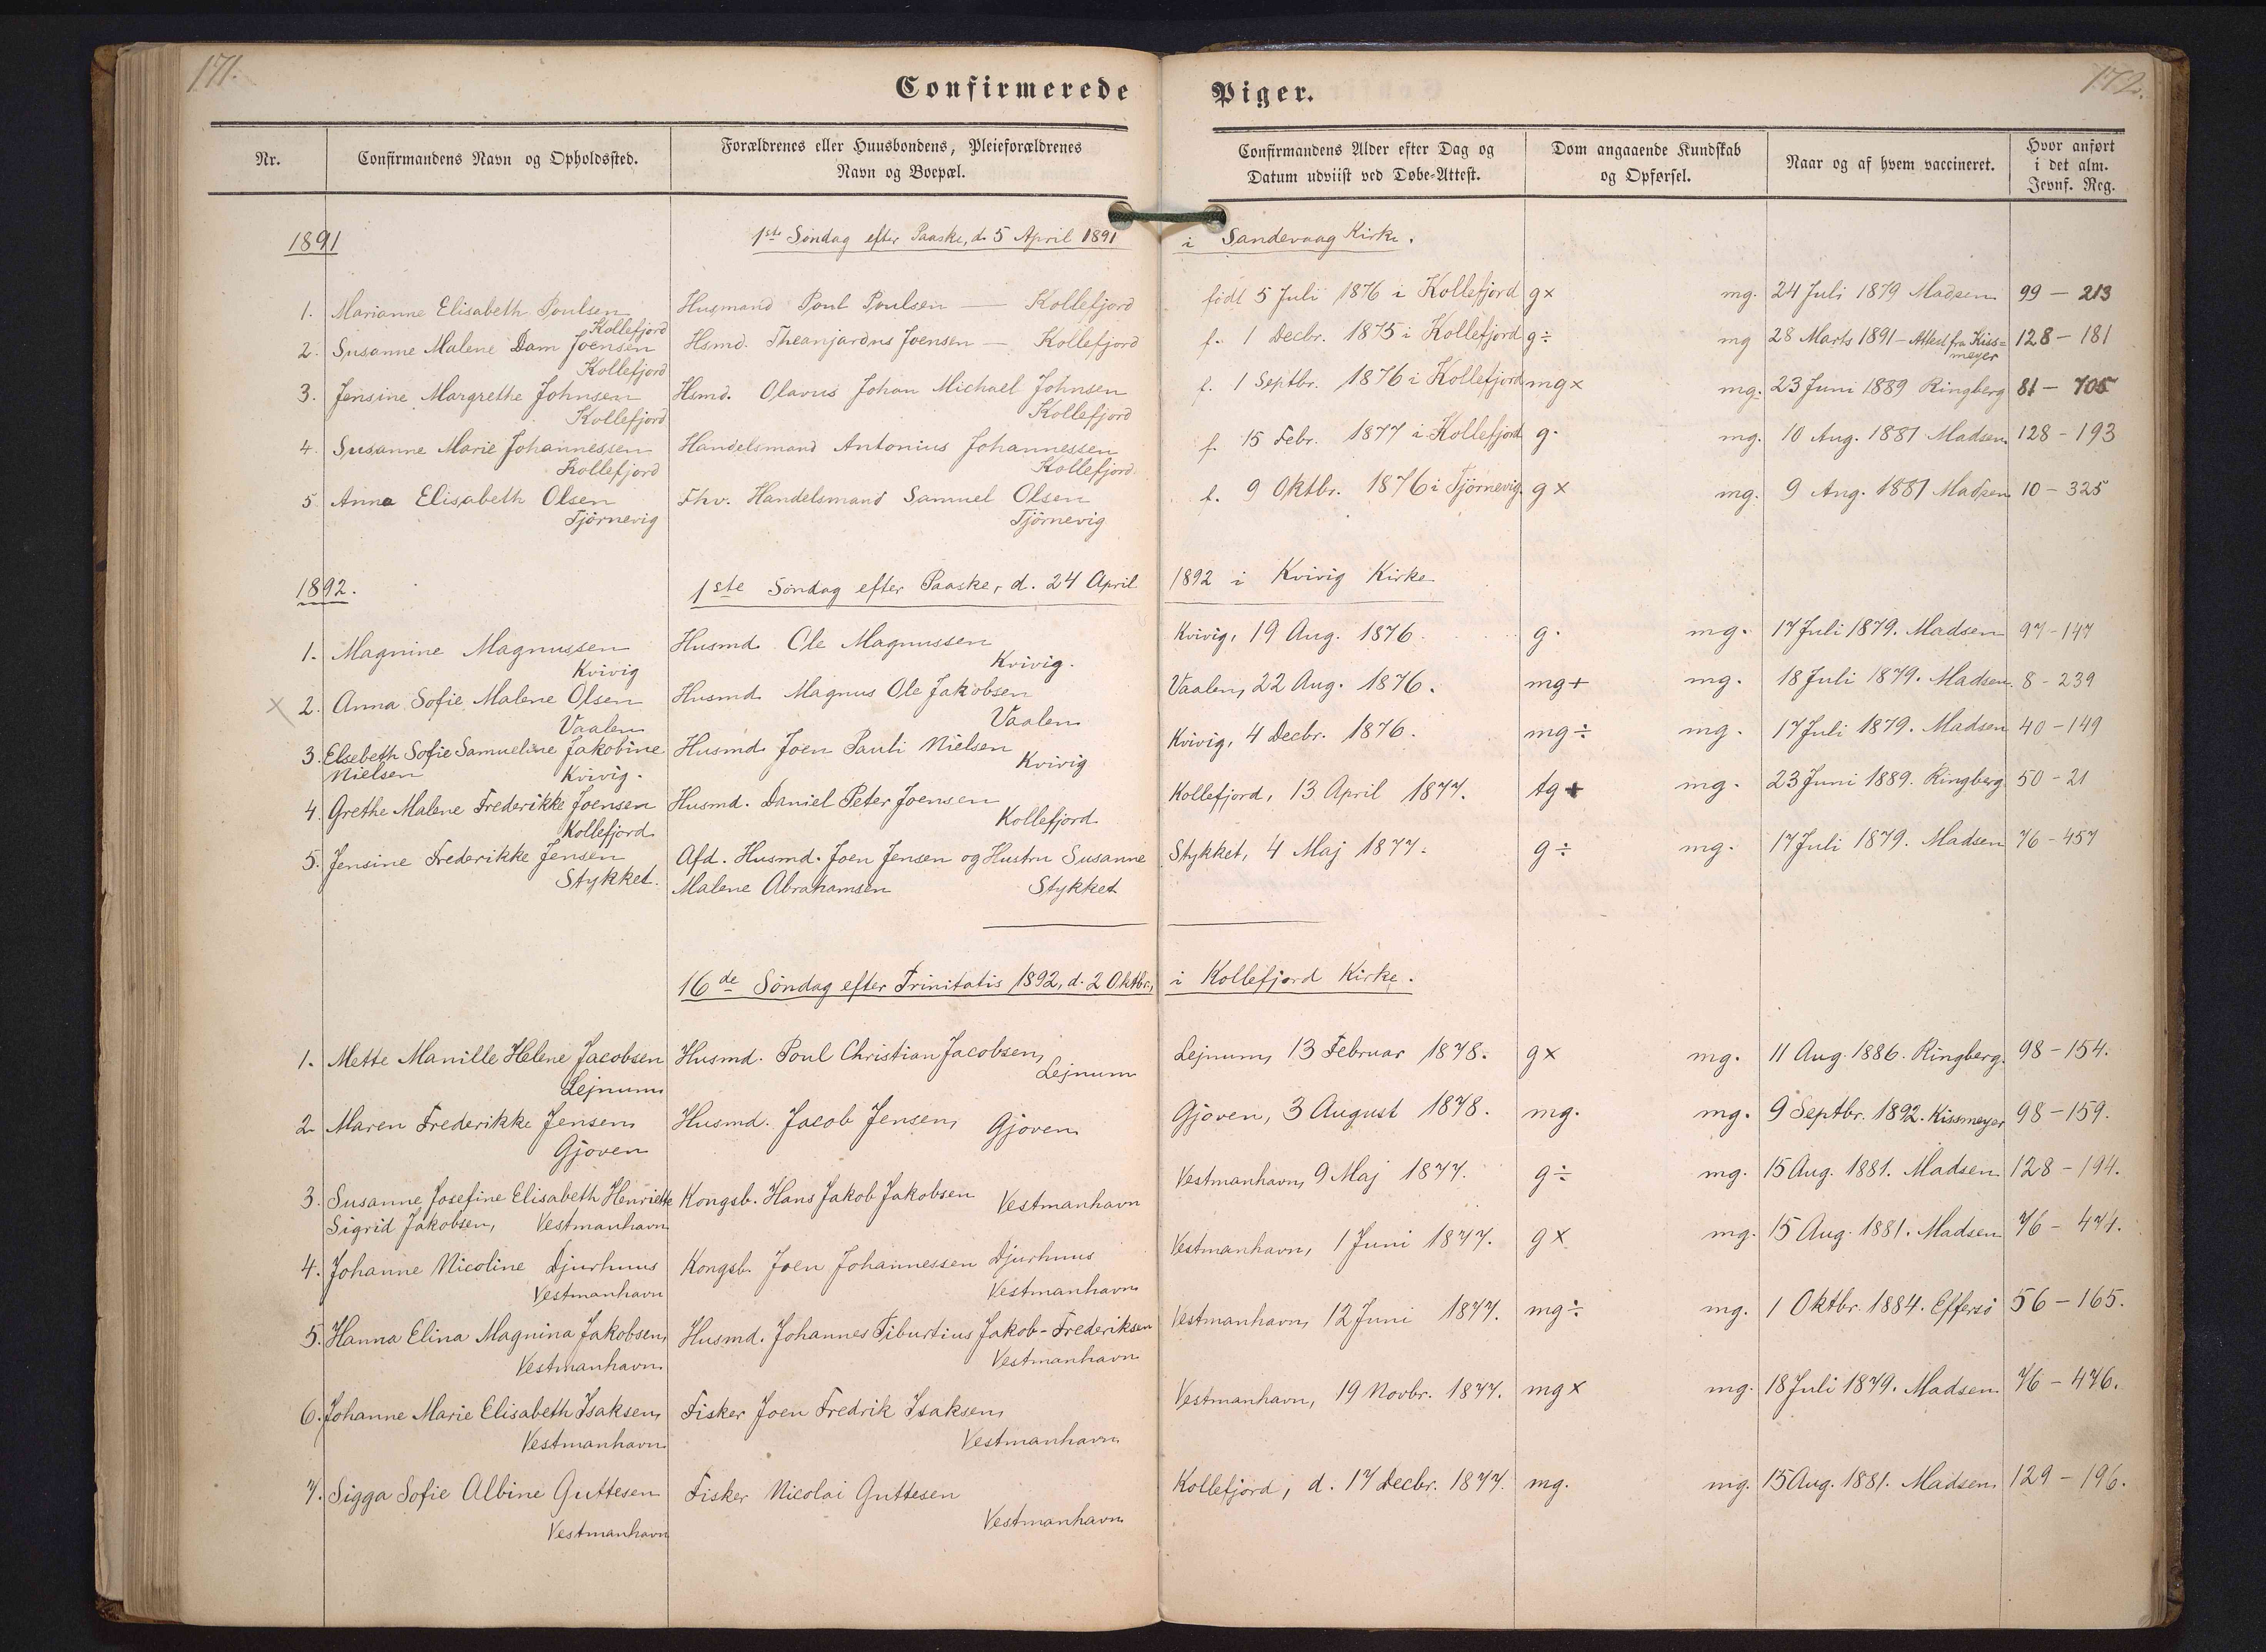 171.
172.
Confirmerede Piger.
Nr.
Confirmandens Navn og Opholdssted.
Forældrenes eller Huusbondens, Pleieforældrenes
Navn og Boepæl.
Confirmandens Alder efter Dag og
Datum udviist ved Døbe-Attest.
Dom angaaende Kundskab
og Opførsel.
Naar og af hvem vaccineret.
Hvor anført
i det alm.
Jevnf. Reg.
1891 1ste Søndag efter Paaske, d. 5 April 1891 i Sandevaag Kirke.
1. Marianne Elisabeth Poulsen Husmand Poul Poulsen — Kollefjord født 5 Juli 1876 i Kollefjord g× mg. 24 Juli 1879 Madsen 99 - 213
Kollefjord
2. Susanne Malene Dam Joensen Hsmd. Theanjardus Joensen — Kollefjord f. 1 Decbr. 1875 i Kollefjord g÷ mg 28 Marts 1891 - Attest fra Kiss= 128 - 181
Kollefjord meyer
3. Jensine Margrethe Johnsen Hsmd. Olavus Johan Michael Johnsen f. 1 Septbr. 1876 i Kollefjord mg× mg. 23 Juni 1889 Ringberg 81 - 705
Kollefjord Kollefjord
4. Susanne Marie Johannessen Handelsmand Antonius Johannessen f. 15 Febr. 1877 i Kollefjord g. mg. 10 Aug. 1881 Madsen 128 - 193
Kollefjord Kollefjord
5 Anna Elisabeth Olsen Fhv. Handelsmand Samuel Olsen f. 9 Oktbr. 1876 i Tjörnevig g× mg. 9 Aug. 1881 Madsen 10 - 325
Tjörnevig Tjörnevig
1892. 1ste Søndag efter Paaske, d. 24 April 1892 i Kvivig Kirke
1. Magnine Magnussen Husmd. Ole Magnussen Kvivig, 19 Aug. 1876. g. mg. 17 Juli 1879. Madsen 97-147
Kvivig Kvivig.
× 2. Anna Sofie Malene Olsen Husmd. Magnus Ole Jakobsen Vaalen, 22 Aug. 1876. mg+ mg. 18 Juli 1879. Madsen. 8-239
Vaalen Vaalen
3. Elsebeth Sofie Samueline Jakobine Husmd. Joen Pauli Nielsen Kvivig, 4 Decbr. 1876. mg÷ mg. 17 Juli 1879. Madsen 40-149
Nielsen Kvivig. Kvivig
4. Grethe Malene Frederikke Joensen Husmd. Daniel Peter Joensen Kollefjord, 13 April 1877. tg+ mg. 23 Juni 1889. Ringberg 50-21
Kollefjord Kollefjord
5. Jensine Frederikke Jensen Afd. Husmd. Joen Jensen og Hustru Susanne Stykket, 4 Maj 1877. g÷ mg. 17 Juli 1879. Madsen 76-457
Stykket. Malene Abrahamsen Stykket
16de Søndag efter Trinitatis 1892, d. 2 Oktbr., i Kollefjord Kirke.
1. Mette Manille Helene Jacobsen Husmd. Poul Christian Jacobsen, Lejnum, 13 Februar 1878. g× mg. 11 Aug. 1886. Ringberg. 98-154.
Lejnum Lejnum
2 Maren Frederikke Jensen Husmd. Jacob Jensen, Gjoven Gjoven, 3 August 1878. mg. mg. 9 Septbr. 1892. Kissmeyer 98-159.
Gjoven
3. Susanne Josefine Elisabeth Henriette Kongsb. Hans Jakob Jakobsen Vestmanhavn, 9 Maj 1877. g÷ mg. 15 Aug. 1881. Madsen 128-194.
Sigrid Jakobsen, Vestmanhavn Vestmanhavn
4. Johanne Nicoline Djurhuus Kongsb. Joen Johannessen Djurhuus Vestmanhavn, 1 Juni 1877. g× mg. 15 Aug. 1881. Madsen 76-474.
Vestmanhavn Vestmanhavn
5. Hanna Elina Magnina Jakobsen, Husmd. Johannes Tiburtius Jakob-Frederiksen Vestmanhavn, 12 Juni 1877. mg÷ mg. 1 Oktbr. 1884. Effersö 56-165.
Vestmanhavn Vestmanhavn
6. Johanne Marie Elisabeth Isaksen, Fisker Joen Fredrik Isaksen, Vestmanhavn, 19 Novbr. 1877. mg× mg. 18 Juli 1879. Madsen 76-476.
Vestmanhavn Vestmanhavn
7. Sigga Sofie Albine Guttesen Fisker Nicolai Guttesen Kollefjord, d. 17 Decbr. 1877. mg. mg. 15 Aug. 1881. Madsen 129-196.
Vestmanhavn Vestmanhavn